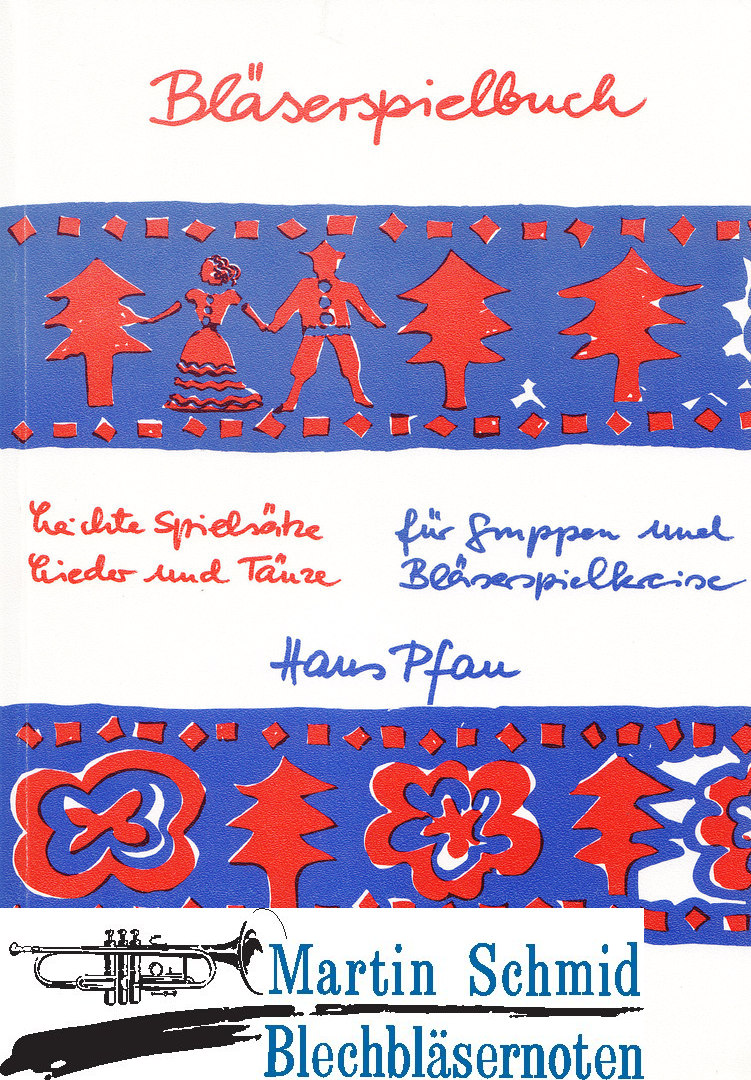 Bläserspielbuch
Leichte Spielsätze
Lieder und Tänze
für Gruppen und
Bläserspielkreise
Hans Pfau
Martin Schmid
Blechbläsernoten